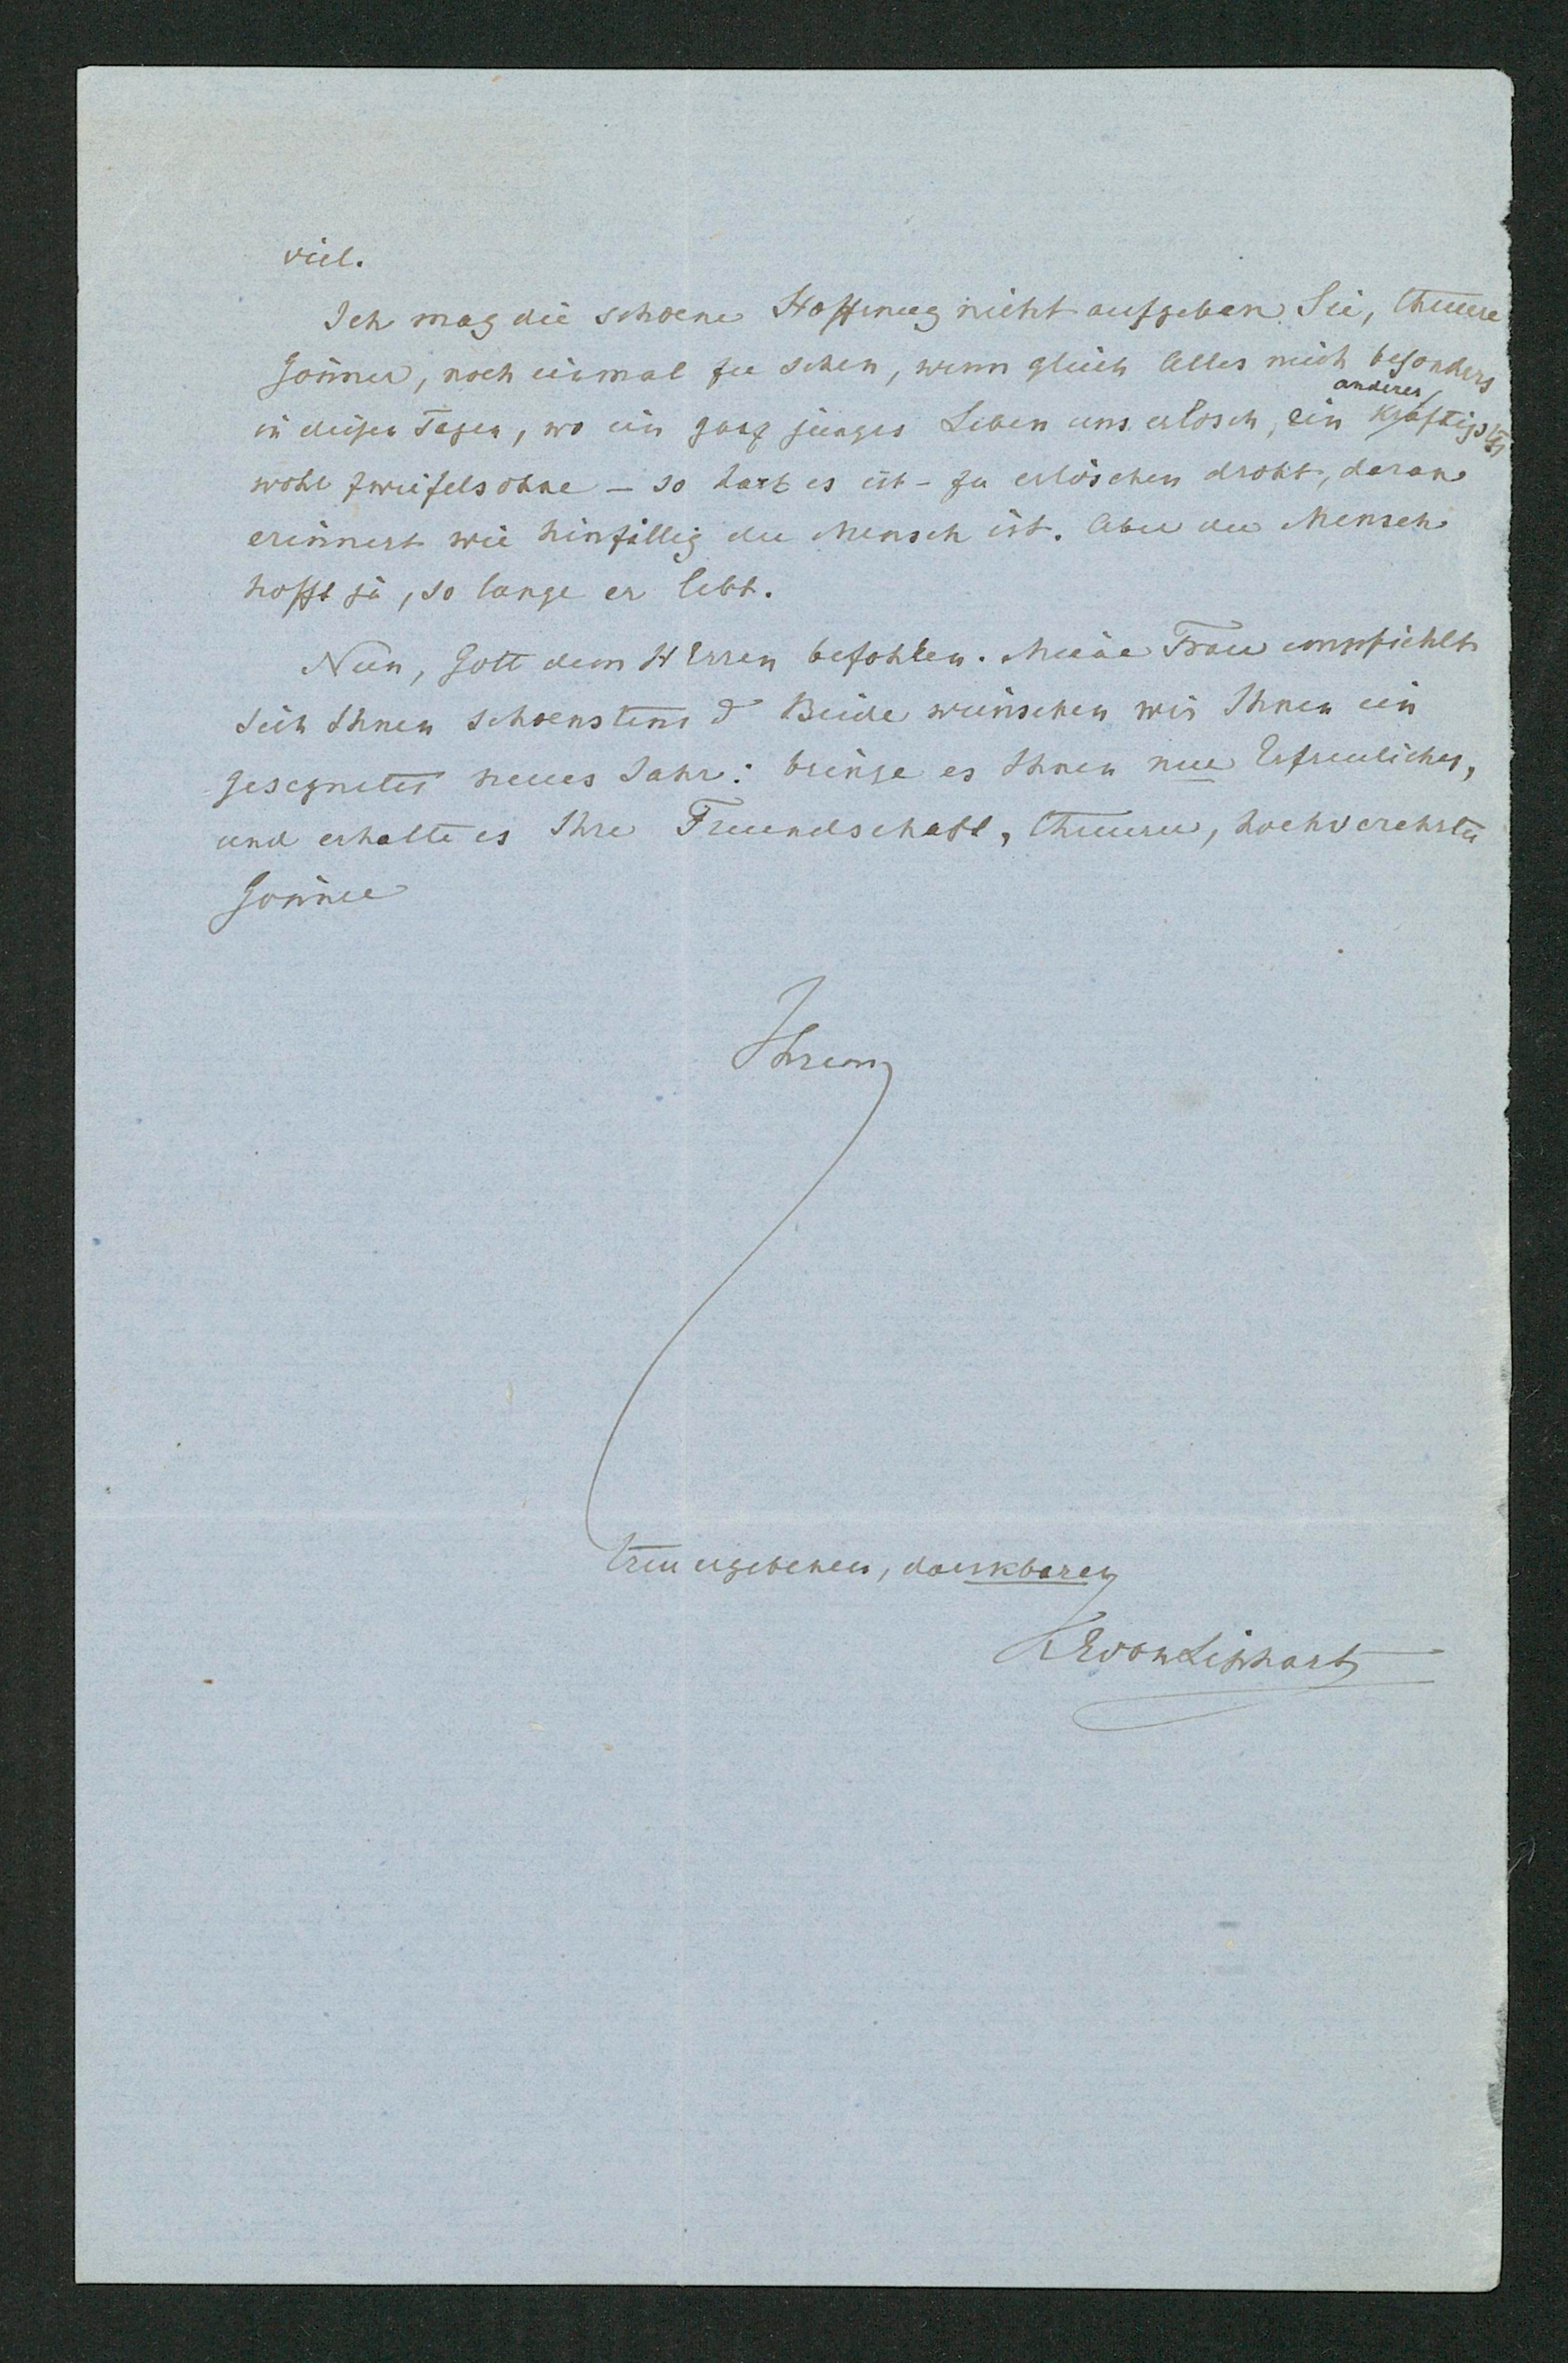 viel.
Ich mag die schoene Hoffnung nicht aufgeben Sie, theurer
Gönner, noch einmal zu sehen, wenn gleich Alles mich besonders
in diesen Tagen, wo ein ganz junges Leben uns erlosch, ein anderes kräftiges
wohl zweifelsohne – so hart es ist – zu erlöschen droht, daran
erinnert wie hinfällig der Mensch ist. Aber der Mensch
hofft ja, so lange er lebt.
Nun, Gott dem HErren befohlen. Meine Frau empfiehlt
sich Ihnen schoenstens & Beide wünschen wir Ihnen ein
gesegnetes neues Jahr: bringe es Ihnen nur Erfreuliches,
und erhalte es Ihre Freundschaft, theurer, hochverehrter
Gönner
Ihrem
treu ergebenen, dankbaren
KEvonLiphart